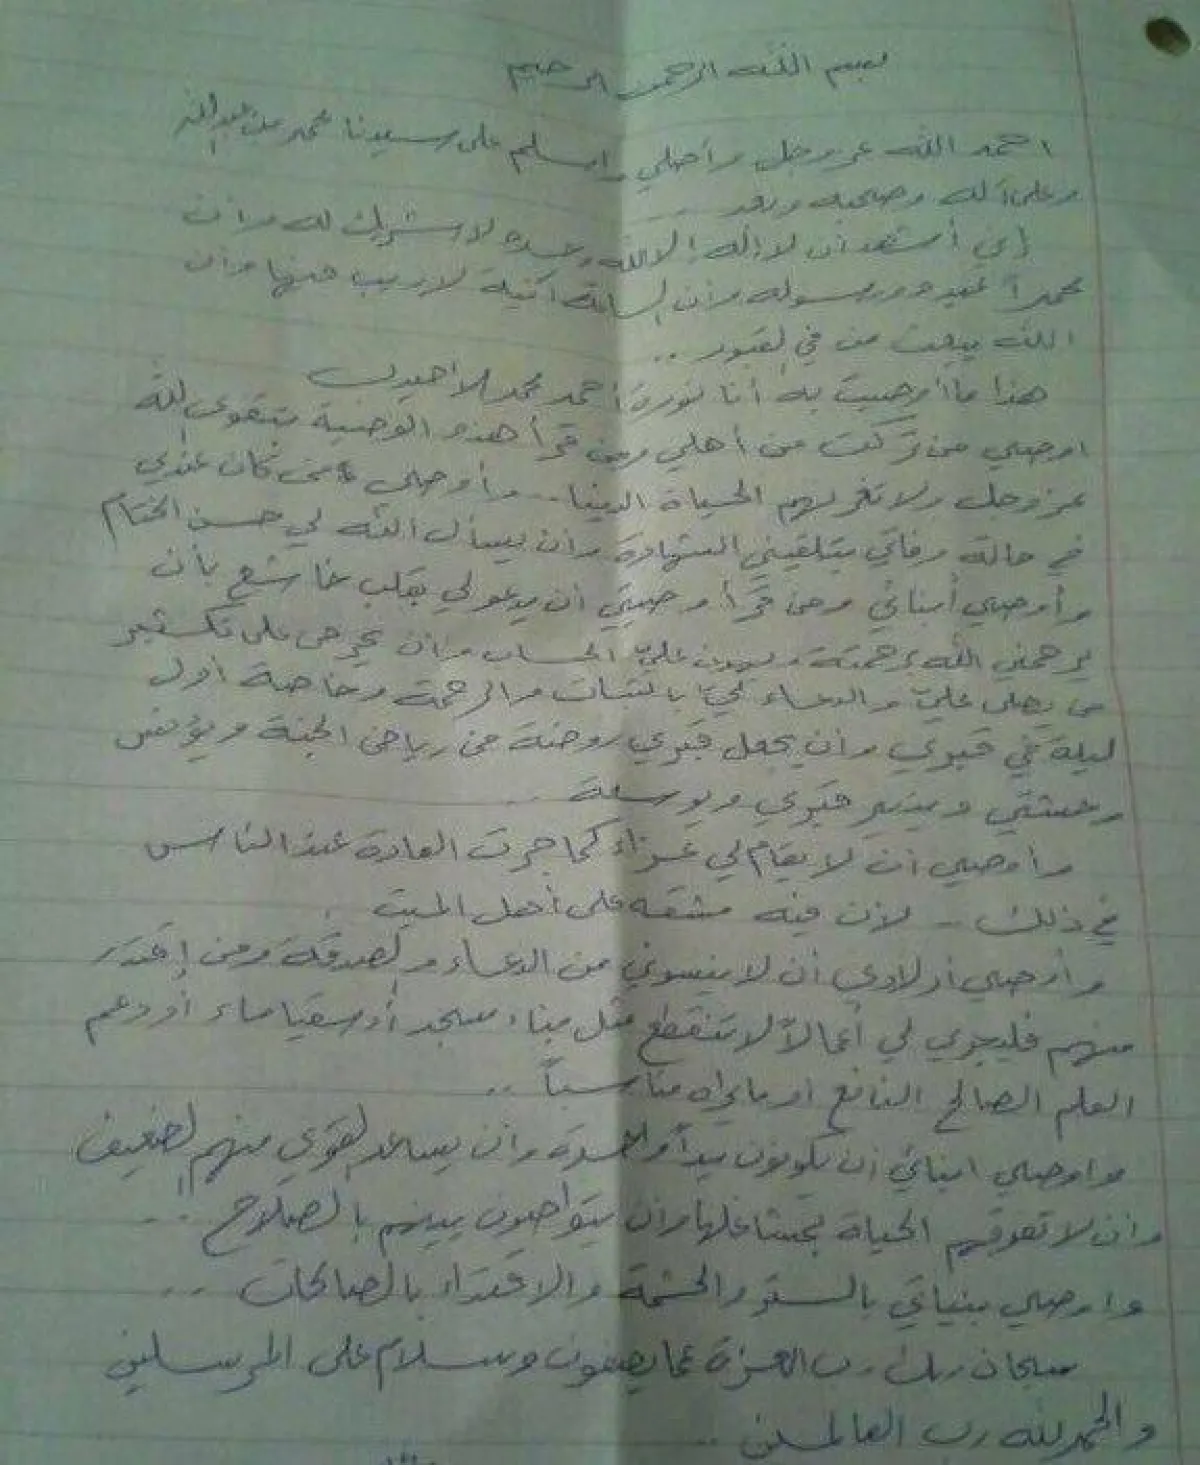 بسم الله الرحمن الرحيم
احمد الله عز وجل وأصلي واسلم على سيدنا محمد بن عبدالله
وعلى آله وصحبه وبعد ..
إني أشهد أن لا إله إلا الله وحده لا شريك له وأن
محمداً عبده ورسوله وأن الساعة آتية لا ريب فيها وأن
الله يبعث من في القبور ..
هذا ما أوصيت به أنا نورة أحمد محمد
اوصي من تركت من أهلي ومن قرأ هذه الوصية بتقوى الله
عز وجل ولا تغرنهم الحياة الدنيا .. وأوصي من كان عندي
في حالة وفاتي بتلقيني الشهادة وأن يسأل الله لي حسن الختام
وأوصي أبنائي ومن قرأ وصيتي أن يدعو لي بقلب خاشع بأن
يرحمني الله برحمته ويهون عليّ الحساب وأن يحرص على تكثير
من يصلي عليّ والدعاء لي بالثبات والرحمة وخاصة أول
ليلة في قبري وأن يجعل قبري روضة من رياض الجنة ويؤنس
وحشتي وينير قبري ويوسعه ..
وأوصي أن لا يقام لي عزاء كما جرت العادة عند الناس
في ذلك .. لأن فيه مشقه على أهل الميت .
وأوصي أولادي أن لا ينسوني من الدعاء والصدقة ومن إقتدر
منهم فليجري لي أعمالاً لا تنقطع مثل بناء مسجد أو سقيا ماء أو دعم
العلم الصالح النافع او مايراه مناسباً ..
واوصي ابنائي أن يكونون يداً واحدة وان يساعد القوي منهم الضعيف
وان لا تعوقهم الحياة بمشاغلها وأن يتواصون بينهم بالصلاح ..
واوصي بنياتي بالستر والحشمة والاقتداء بالصالحات ..
سبحان ربك رب العزة عما يصفون وسلام على المرسلين
والحمدلله رب العالمين ..